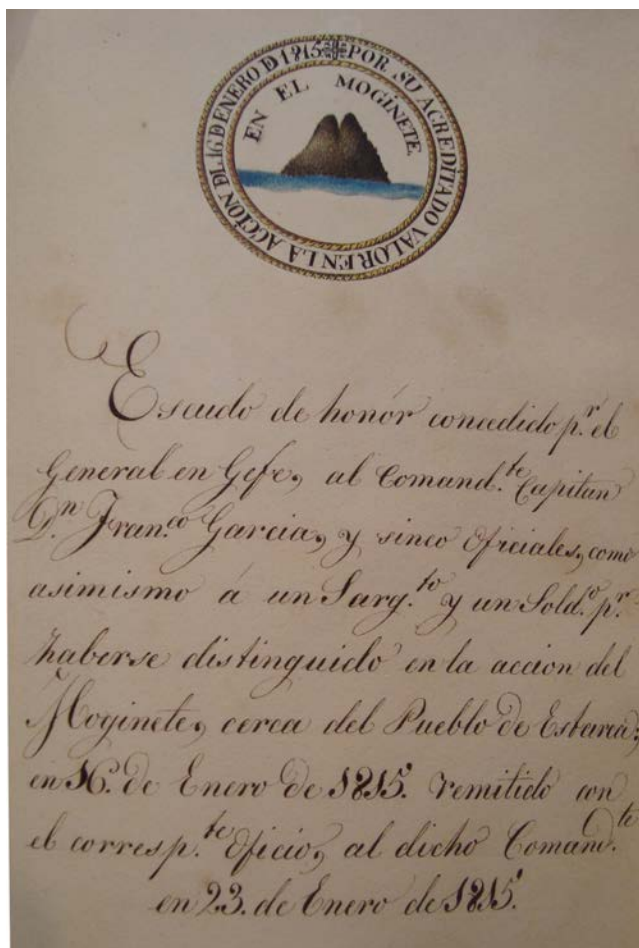 POR SU ACREDITADO VALOR EN LA ACCION DL 16 D ENERO D 1815
EN EL MOGINETE
Escudo de honór concedido p.r el
General en Gefe, al Comand.te Capitan
D.n Fran.co Garcia, y sinco Oficiales, como
asimismo á un Sarg.to y un Sold.o p.r
haberse distinguido en la accion del
Moginete, cerca del Pueblo de Estarca;
en 16. de Enero de 1815. remitido con
el corresp.te Oficio, al dicho Comand.te
en 23. de Enero de 1815.